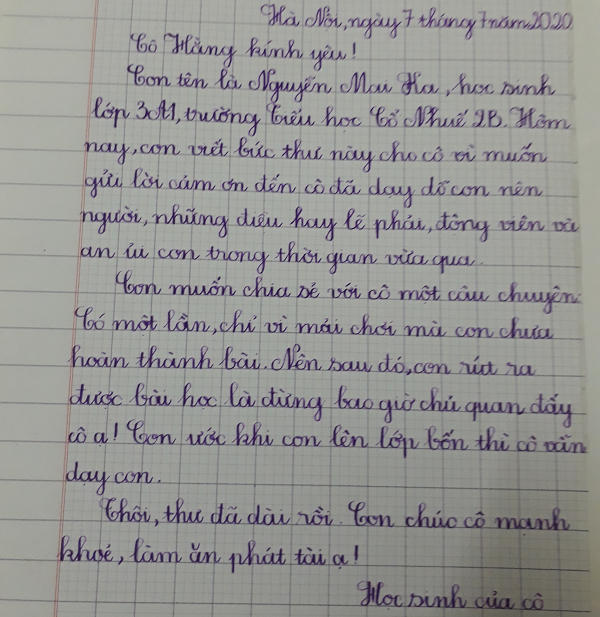 Hà Nội, ngày 7 tháng 7 năm 2020
Cô Hằng kính yêu!
Con tên là Nguyễn Mai Hà, học sinh
lớp 3M1, trường Tiểu học Cổ Nhuế 2B. Hôm
nay, con viết bức thư này cho cô vì muốn
gửi lời cám ơn đến cô đã dạy dỗ con nên
người, những điều hay lẽ phải, động viên và
an ủi con trong thời gian vừa qua.
Con muốn chia sẻ với cô một câu chuyện:
Có một lần, chỉ vì mải chơi mà con chưa
hoàn thành bài. Nên sau đó, con rút ra
được bài học là đừng bao giờ chủ quan đấy
cô ạ! Con ước khi con lên lớp bốn thì cô vẫn
dạy con.
Thôi, thư đã dài rồi. Con chúc cô mạnh
khoẻ, làm ăn phát tài ạ!
Học sinh của cô